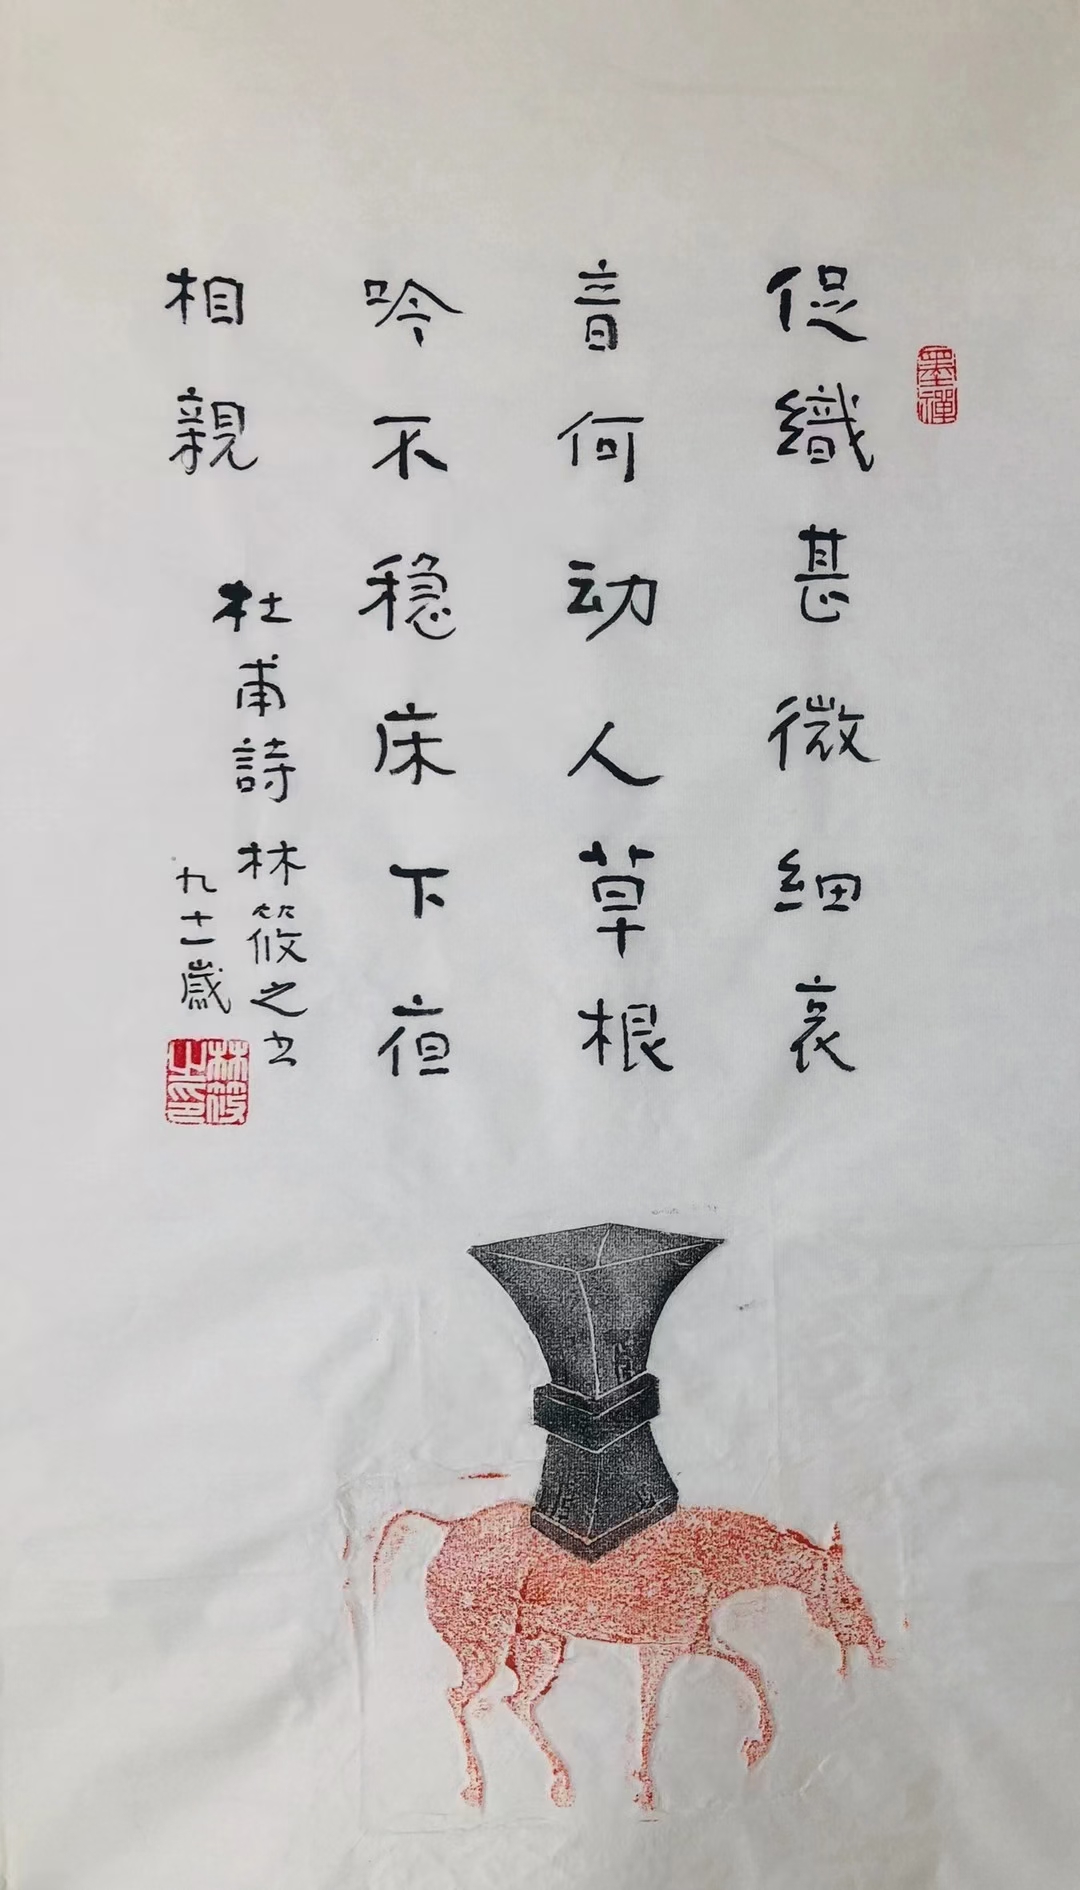 墨禪
促織甚微細哀
音何动人草根
吟不稳床下夜
相親
杜甫詩 林筱之书
九十一歲
林筱之印